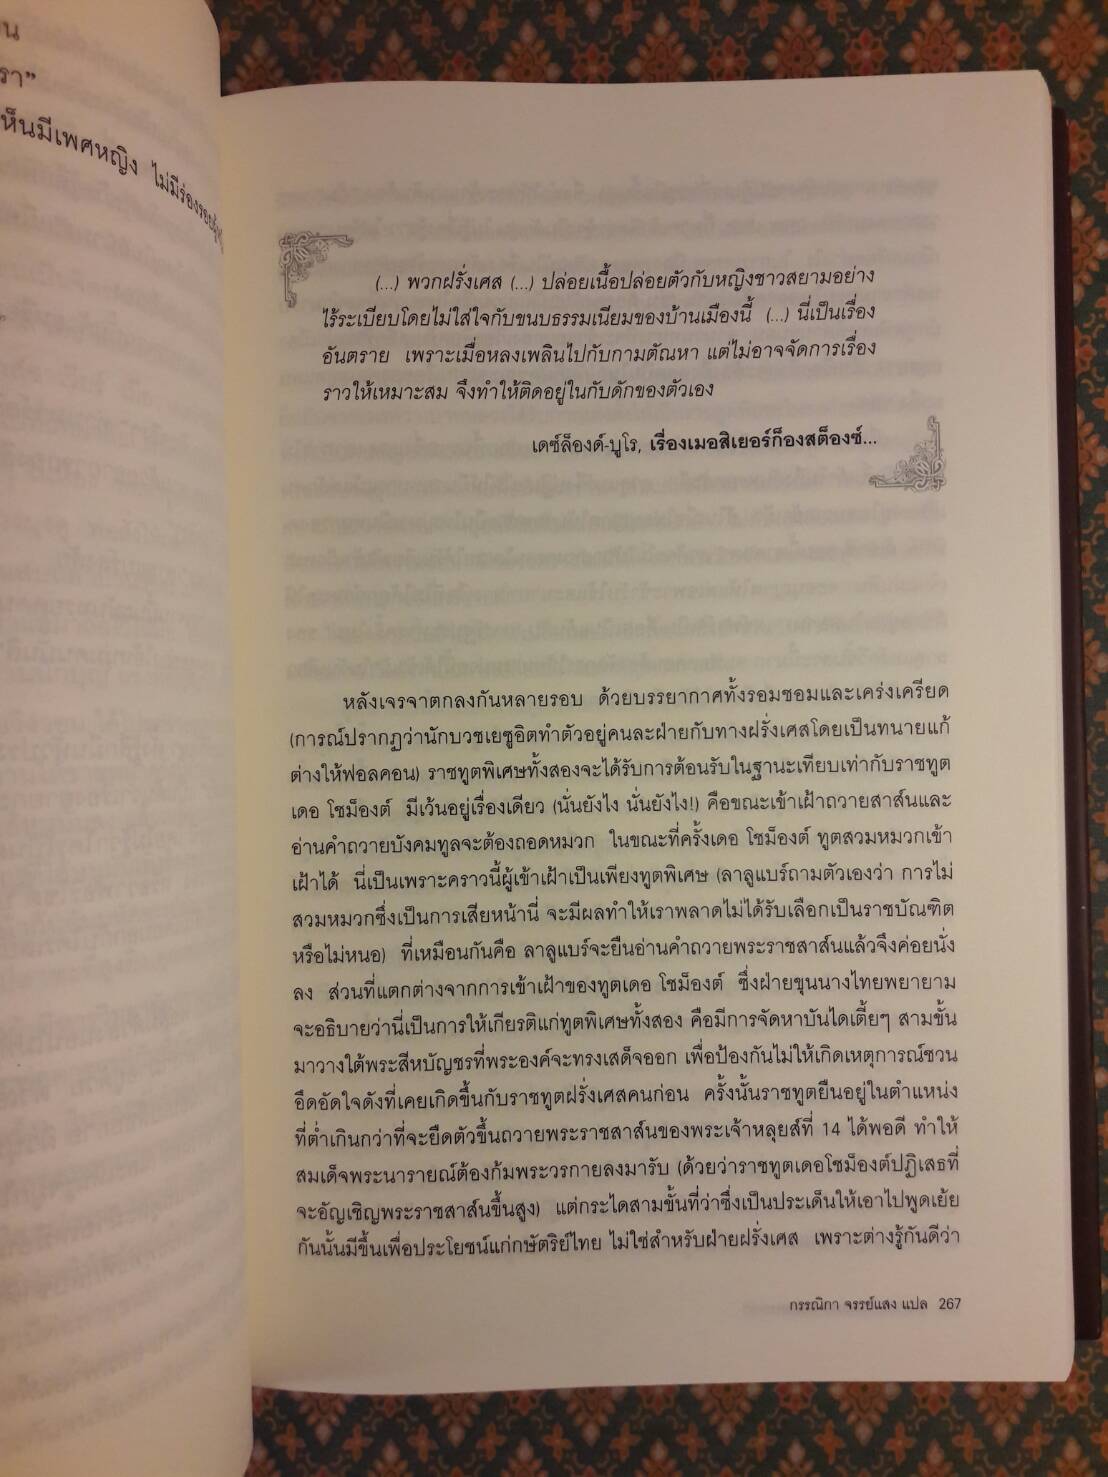 รา”
ห็นมีเพศหญิง ไม่มีร่องรอย
(...) พวกฝรั่งเศส (...) ปล่อยเนื้อปล่อยตัวกับหญิงชาวสยามอย่าง
ไร้ระเบียบโดยไม่ใส่ใจกับขนบธรรมเนียมของบ้านเมืองนี้ (...) นี่เป็นเรื่อง
อันตราย เพราะเมื่อหลงเพลินไปกับกามตัณหา แต่ไม่อาจจัดการเรื่อง
ราวให้เหมาะสม จึงทำให้ติดอยู่ในกับดักของตัวเอง
เดซ์ล็องด์-บูโร, เรื่องเมอสิเยอร์ก็องสต็องซ์...
หลังเจรจาตกลงกันหลายรอบ ด้วยบรรยากาศทั้งรอมซอมและเคร่งเครียด
(การณ์ปรากฏว่านักบวชเยซูอิตทำตัวอยู่คนละฝ่ายกับทางฝรั่งเศสโดยเป็นทนายแก้
ต่างให้ฟอลคอน) ราชทูตพิเศษทั้งสองจะได้รับการต้อนรับในฐานะเทียบเท่ากับราชทูต
เดอ โชม็องต์ มีเว้นอยู่เรื่องเดียว (นั่นยังไง นั่นยังไง!) คือขณะเข้าเฝ้าถวายสาส์นและ
อ่านคำถวายบังคมทูลจะต้องถอดหมวก ในขณะที่ครั้งเดอ โชม็องต์ ทูตสวมหมวกเข้า
เฝ้าได้ นี่เป็นเพราะคราวนี้ผู้เข้าเฝ้าเป็นเพียงทูตพิเศษ (ลาลูแบร์ถามตัวเองว่า การไม่
สวมหมวกซึ่งเป็นการเสียหน้านี่ จะมีผลทำให้เราพลาดไม่ได้รับเลือกเป็นราชบัณฑิต
หรือไม่หนอ) ที่เหมือนกันคือ ลาลูแบร์จะยืนอ่านคำถวายพระราชสาส์นแล้วจึงค่อยนั่ง
ลง ส่วนที่แตกต่างจากการเข้าเฝ้าของทูตเดอ โชม็องต์ ซึ่งฝ่ายขุนนางไทยพยายาม
จะอธิบายว่านี่เป็นการให้เกียรติแก่ทูตพิเศษทั้งสอง คือมีการจัดหาบันไดเตี้ยๆ สามขั้น
มาวางใต้พระสีหบัญชรที่พระองค์จะทรงเสด็จออก เพื่อป้องกันไม่ให้เกิดเหตุการณ์ชวน
อึดอัดใจดังที่เคยเกิดขึ้นกับราชทูตฝรั่งเศสคนก่อน ครั้งนั้นราชทูตยืนอยู่ในตำแหน่ง
ที่ต่ำเกินกว่าที่จะยืดตัวขึ้นถวายพระราชสาส์นของพระเจ้าหลุยส์ที่ 14 ได้พอดี ทำให้
สมเด็จพระนารายณ์ต้องก้มพระวรกายลงมารับ (ด้วยว่าราชทูตเดอโชม็องต์ปฏิเสธที่
จะอัญเชิญพระราชสาส์นขึ้นสูง) แต่กระไดสามขั้นที่ว่าซึ่งเป็นประเด็นให้เอาไปพูดเย้ย
กันนั้นมีขึ้นเพื่อประโยชน์แก่กษัตริย์ไทย ไม่ใช่สำหรับฝ่ายฝรั่งเศส เพราะต่างรู้กันดีว่า
กรรณิกา จรรย์แสง แปล 267